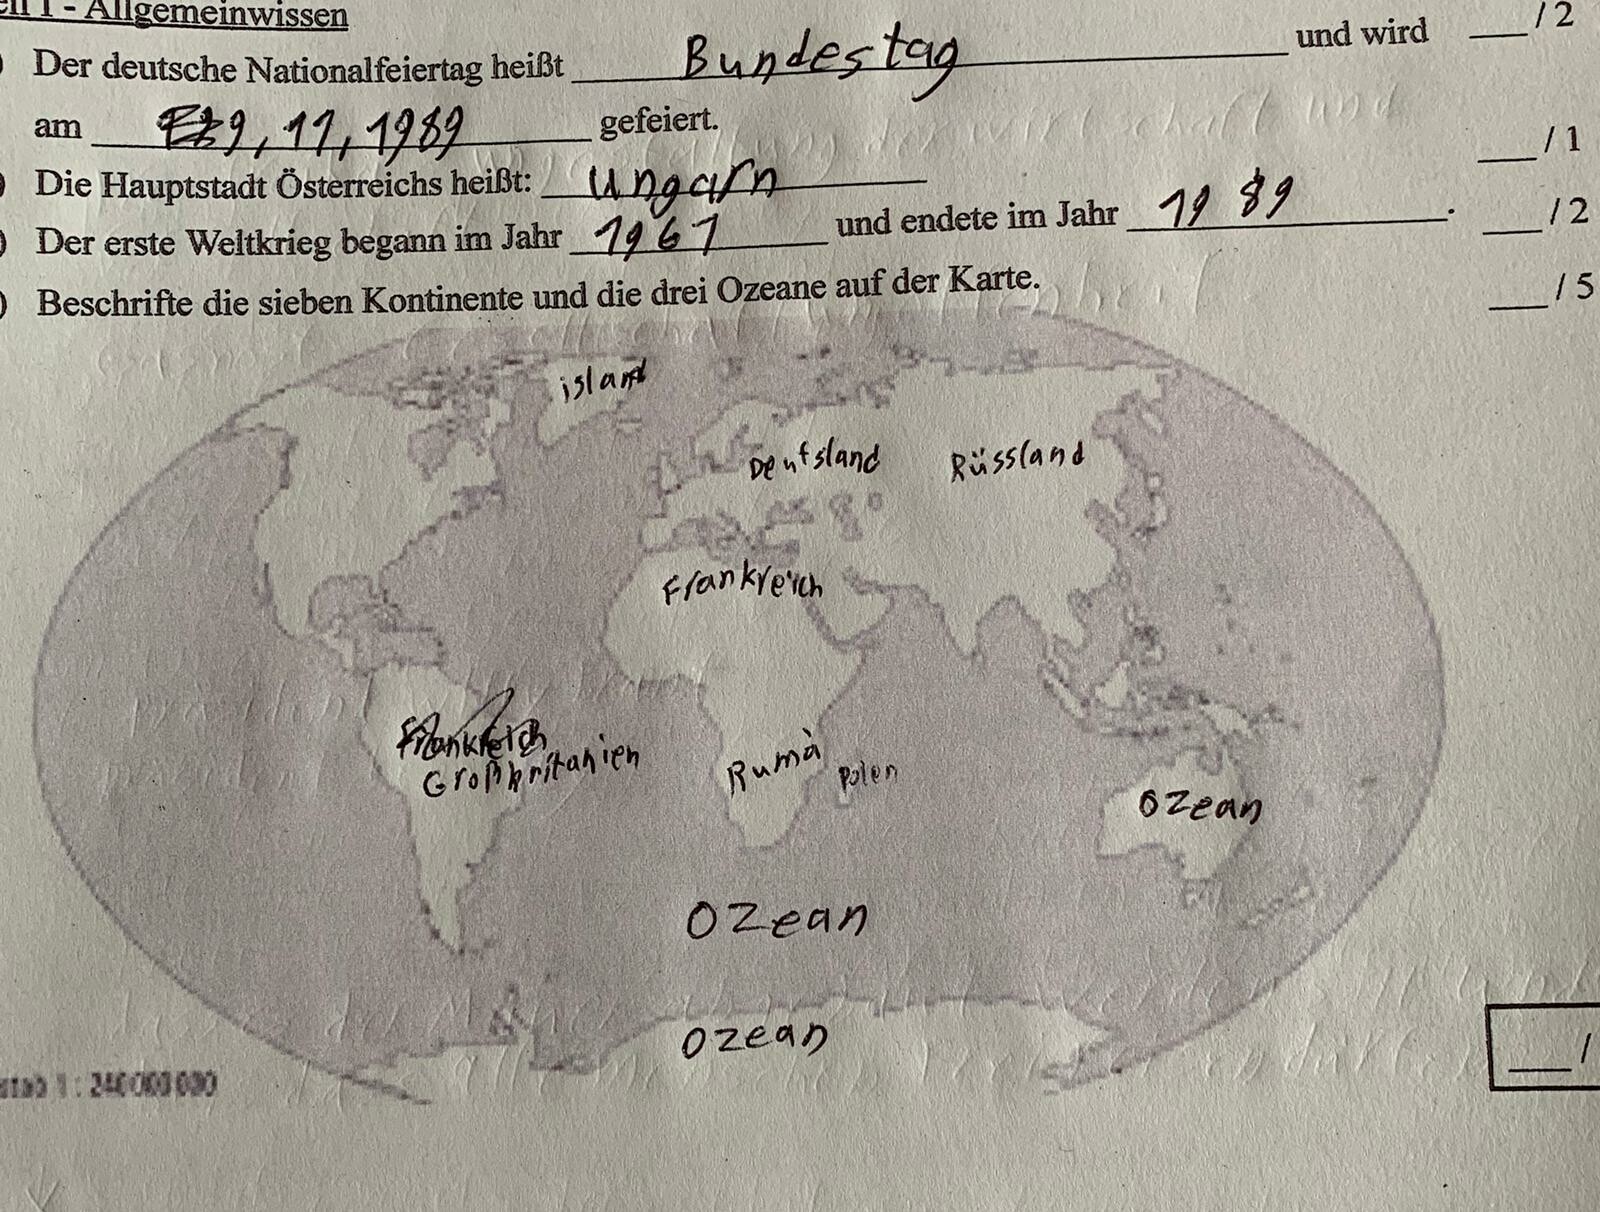 - Allgemeinwissen
Der deutsche Nationalfeiertag heißt Bundestag und wird ___ / 2
am 9, 11, 1989 gefeiert.
Die Hauptstadt Österreichs heißt: Ungarn ___ / 1
Der erste Weltkrieg begann im Jahr 1961 und endete im Jahr 1989. ___ / 2
Beschrifte die sieben Kontinente und die drei Ozeane auf der Karte. ___ / 5
island
Deutsland Rüssland
Frankreich
Frankreich
Großbritanien
Rumä Polen
Ozean
Ozean
Ozean
1 : 240 000 000
___ /